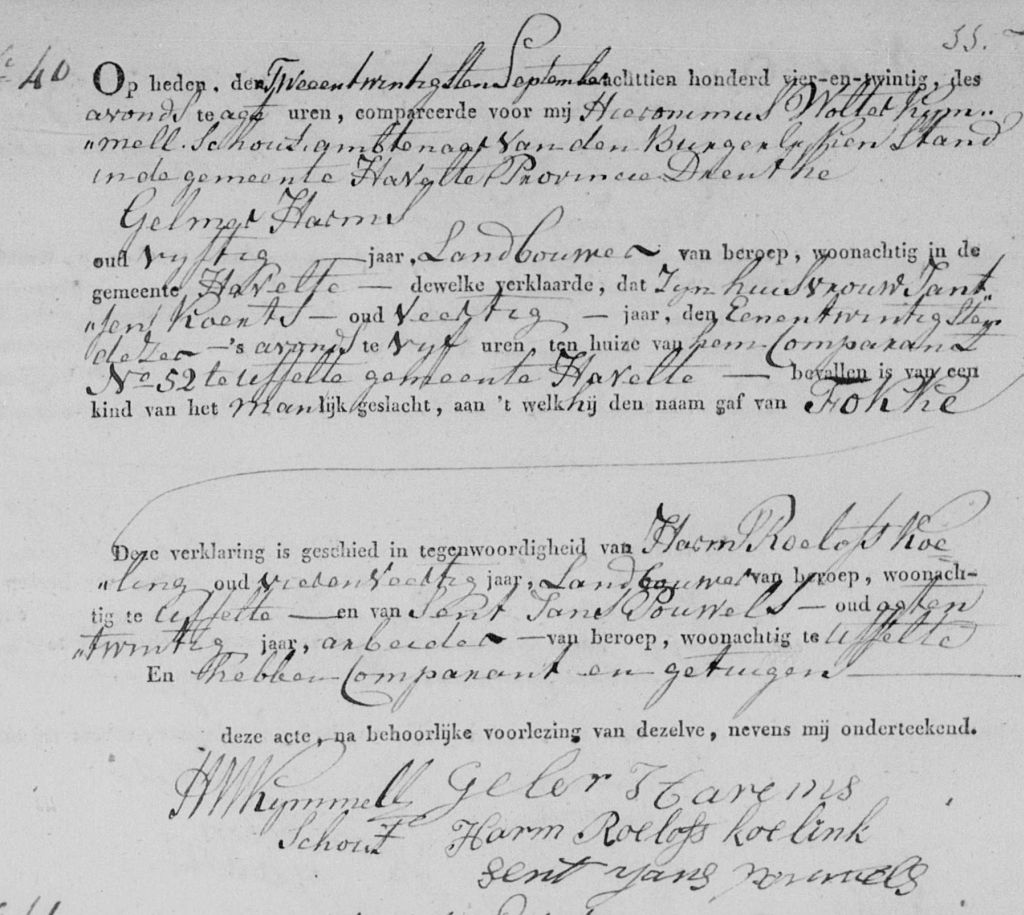 55.
No 40 Op heden, den Tweeentwintigsten September achttien honderd vier-en-twintig, des
avonds te agt uren, compareerde voor mij Hieronimus Wolter Kijm„
„mell. Schout, ambtenaar van den Burgerlyken Stand
in de gemeente Havelte Provincie Drenthe
Gelmer Harms
oud vyftig jaar, Landbouwer van beroep, woonachtig in de
gemeente Havelte — dewelke verklaarde, dat Zyn huisvrouw Jant„
„jen Koerts — oud Veertig — jaar, den Eenentwintigsten
dezer — 's avonds te vyf uren, ten huize van hem Comparant
No 52 te Uffelte gemeente Havelte — bevallen is van een
kind van het manlijk geslacht, aan 't welk hij den naam gaf van Fokke
Deze verklaring is geschied in tegenwoordigheid van Harm Roelofs Koe
„ling oud vierenveertig jaar, Landbouwer van beroep, woonach-
tig te Uffelte — en van Sent Jans Pouwels — oud agten
„twintig jaar, arbeider — van beroep, woonachtig te Uffelte
En hebben Comparant en getuigen
deze acte, na behoorlijke voorlezing van dezelve, nevens mij onderteekend.
HWKymmell Gelmer Harems
Schout Harm Roelofs koelink
sent yans pouwels